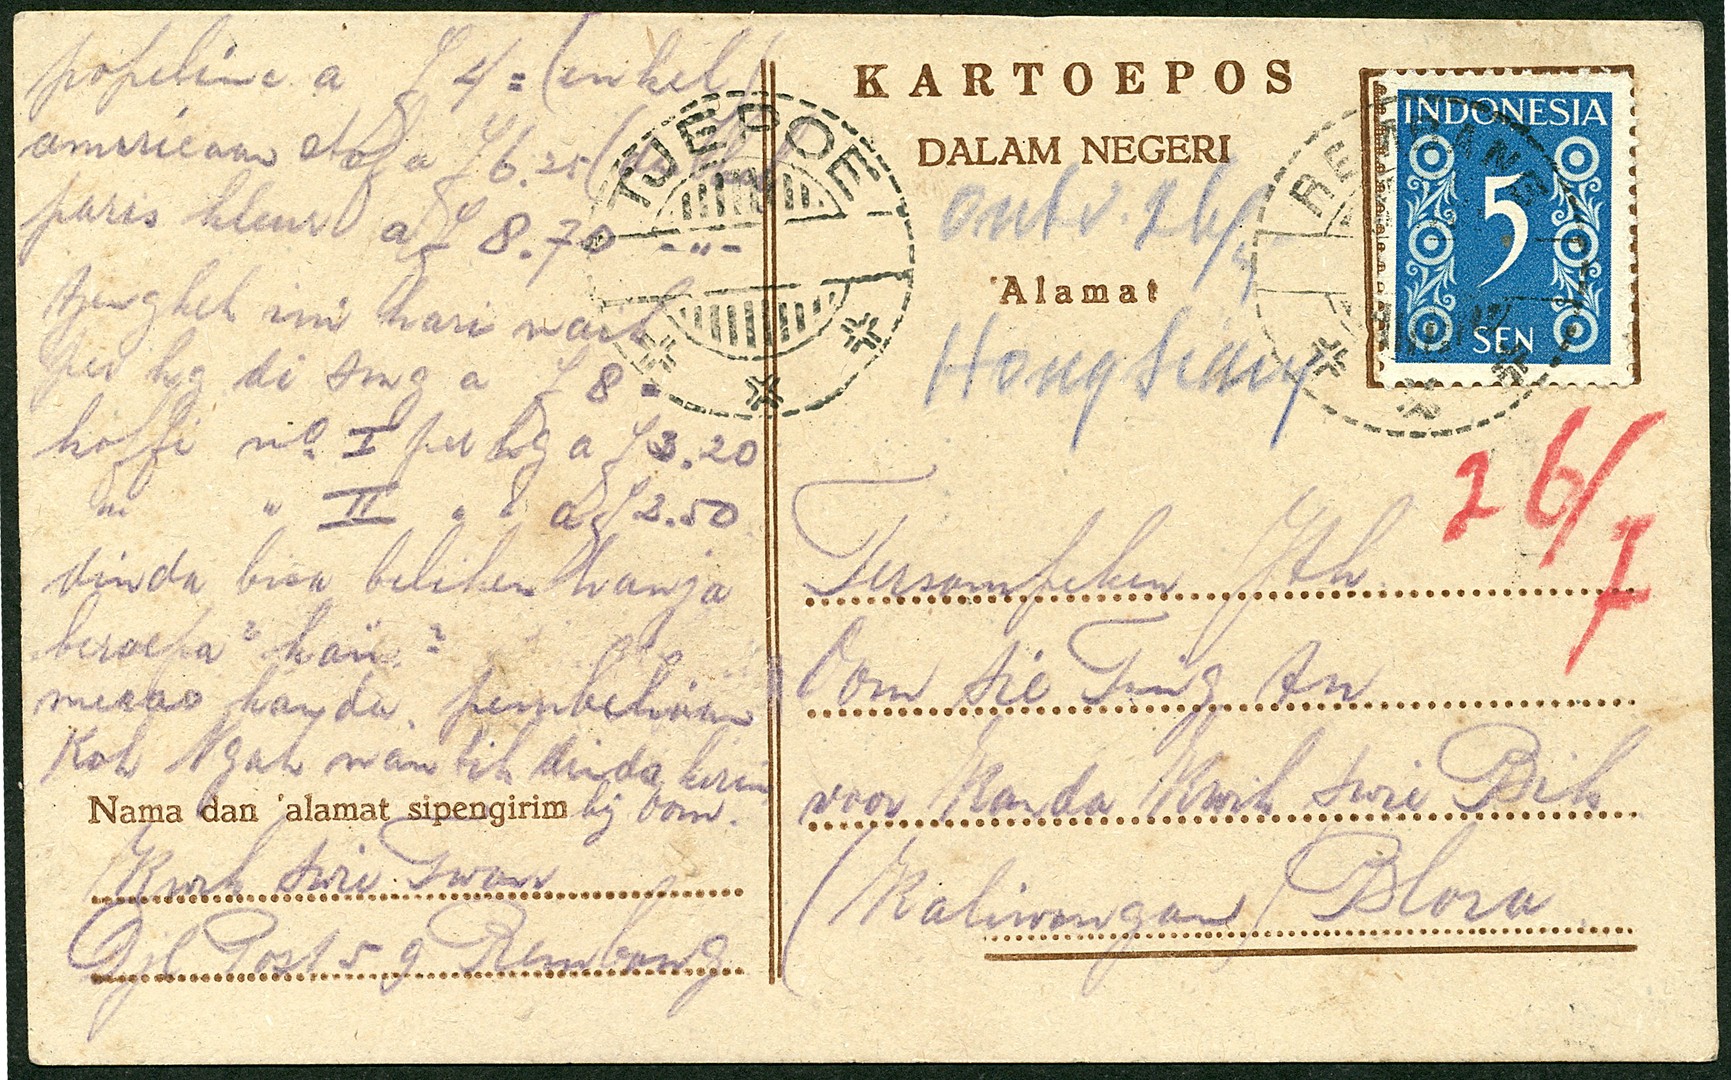 popeline a ƒ 4 = (enkel)
amerricaan stof a ƒ 6.25 (
paris kleur a ƒ 8.70 -"-
tjengkeh ini hari naik
per kg di smg a ƒ 8 =
koffi no. I per kg a ƒ 3.20
" " II " " a ƒ 2.50
dinda bisa beliken hanja
beroepa2 kain2
merao kanda. pembelian
Koh Ngah dinda kirim
bij Oom.
Nama dan 'alamat sipengirim
Kwik Swie Twan
Djl Post 59 Rembang
TJEPOE
KARTOEPOS
DALAM NEGERI
ontv. 26/7
'Alamat
Hong Siang
REMBANG
INDONESIA
5
SEN
26/7
Tersampeken Jth
Oom Sie Ting An
voor Kanda Kwik Swie Bik
(Kaliwangan) Blora